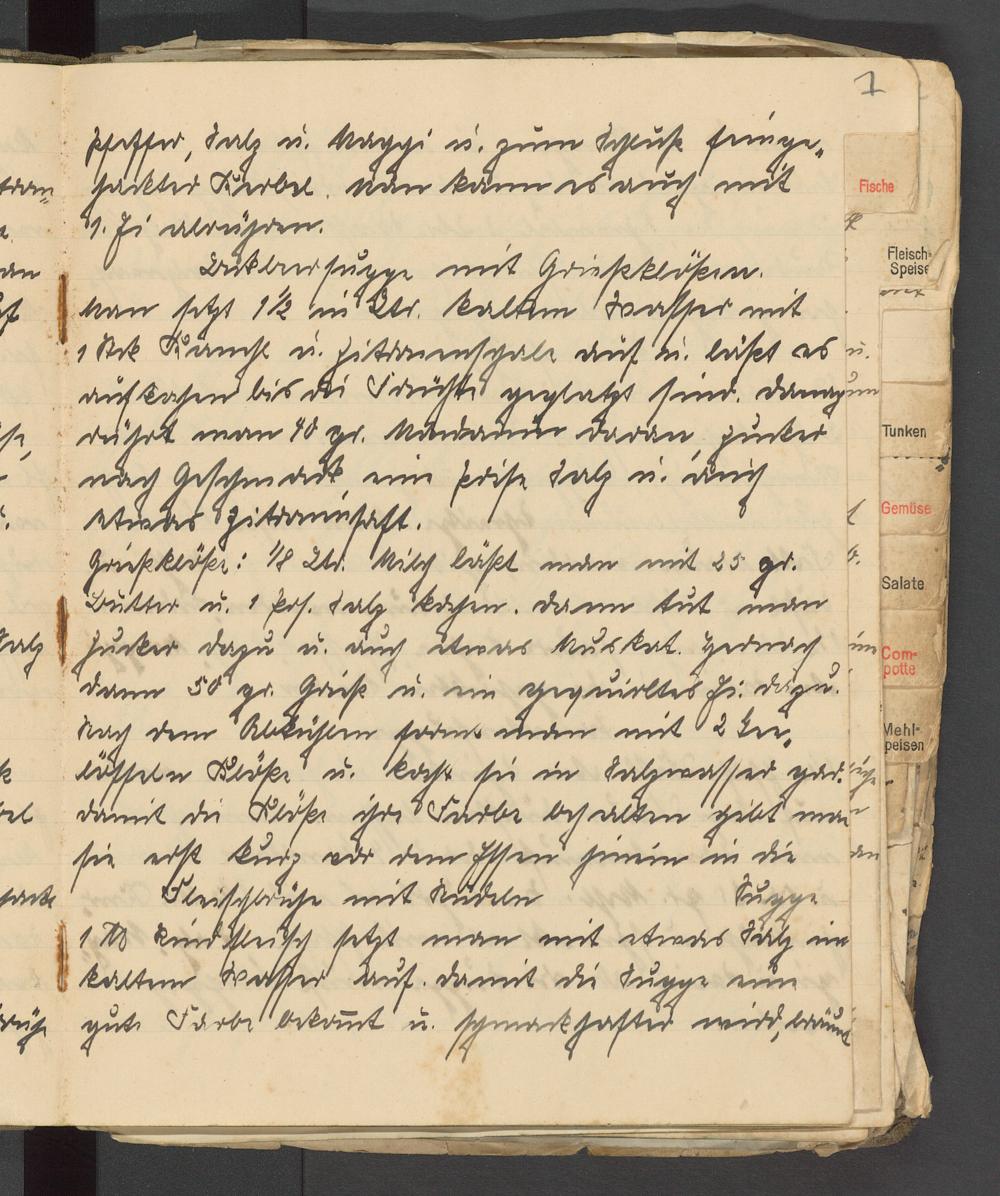 7
Pfeffer, Salz u. Maggi u. zum Schluß feinge-
hackter Kerbel. Man kann es auch mit
1. Ei abrühren.
suppe mit Griesklößen.
Man setzt 1½ in Ltr. kaltem Wasser mit
1 Stck u. Zitronenschale auf u. läßt es
aufkochen bis die Früchte geplatzt sind. Danach
rührt man 40 gr. Mondamin daran, Zucker
nach Geschmack eine Prise Salz u. auch
etwas Zitronensaft.
Griesklöße: 1/8 Ltr. Milch läßt man mit 25 gr.
Butter u. 1 Prs. Salz kochen. Dann tut man
Zucker dazu u. auch etwas Muskat. Hernach
dann 50 gr. Gries u. ein gequirltes Ei dazu.
Nach dem Abkühlen formt man mit 2 Tee-
löffeln Klöße u. kocht sie in Salzwasser gar.
damit die Klöße ihre Farbe behalten gibt man
sie erst kurz vor dem Essen hinein in die
Suppe
Fleischbrühe mit Nudeln
1 ℔ Rindfleisch setzt man mit etwas Salz im
kaltem Wasser auf. damit die Suppe eine
gute Farbe bekom̄t u. schmackhafter wird, bräunt
Fische
Fleisch-
Speise
Tunken
Gemüse
Salate
Com-
potte
Mehl-
peisen